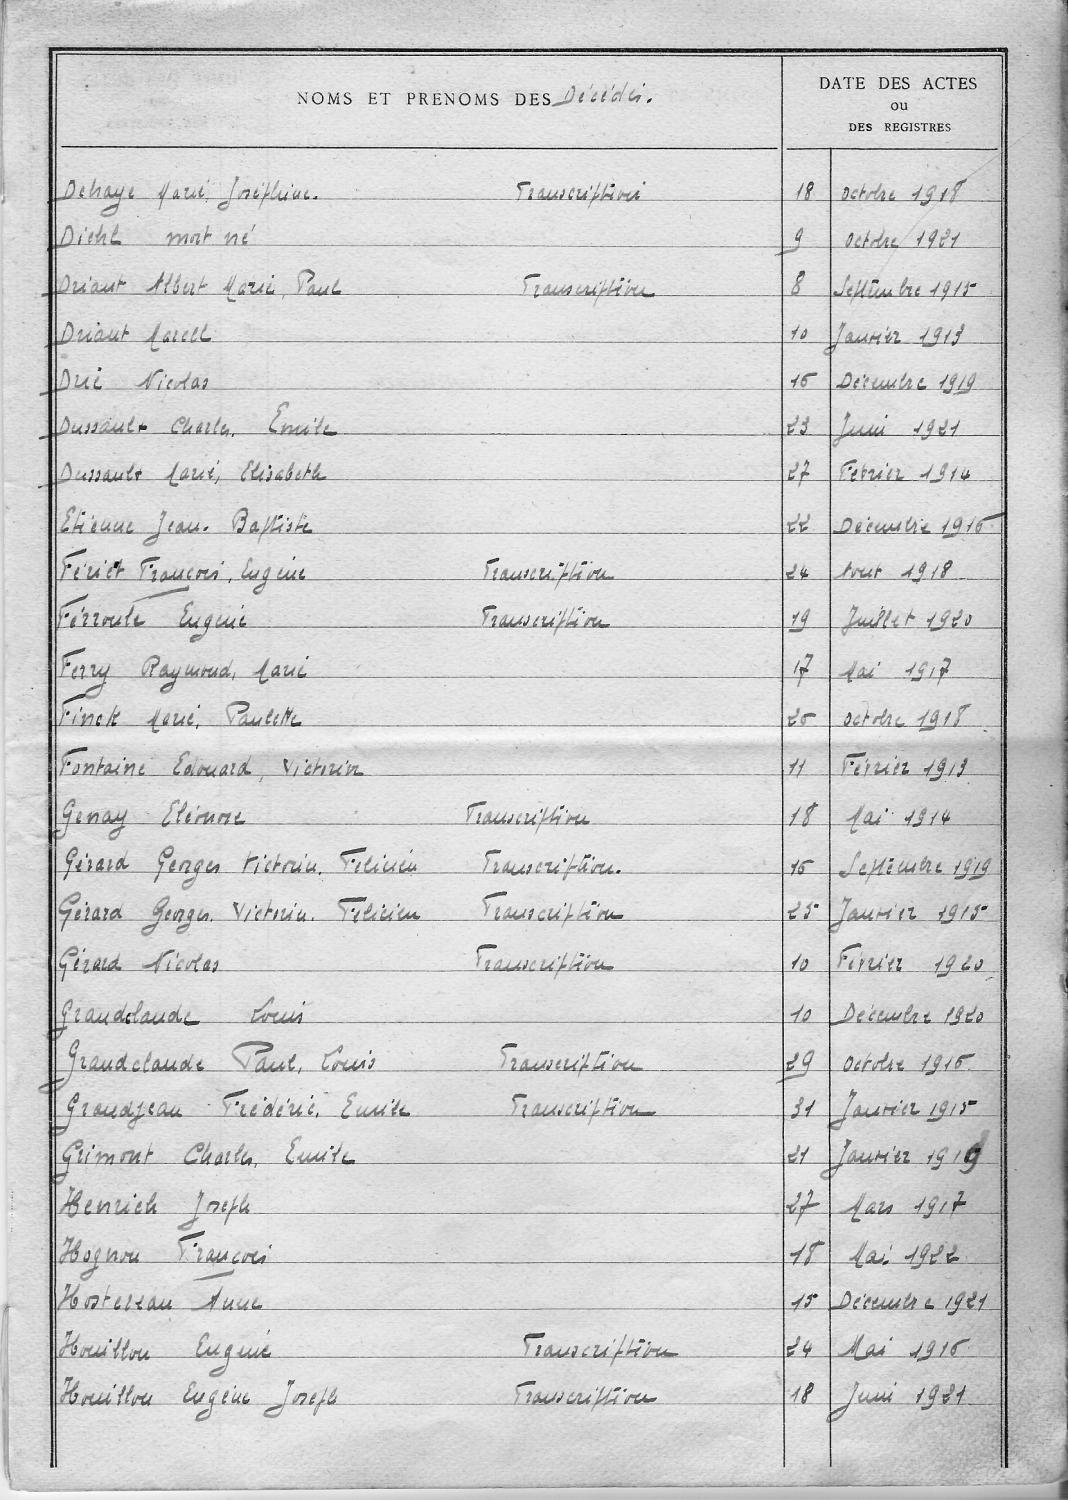 NOMS ET PRENOMS DES Décédés. DATE DES ACTES
ou
DES REGISTRES
Delhaye Marie, Joséphine. Transcription 18 Octobre 1918
Diehl mort né 9 Octobre 1921
Driant Albert Marie, Paul Transcription 8 Septembre 1915
Driant Marcel 10 Janvier 1913
Nicolas 16 Décembre 1919
Dussault Charles, Emile 23 Juin 1921
Dussault Marie, Elisabeth 27 Février 1914
Etienne Jean-Baptiste 22 Décembre 1916
Fériet François, Eugène Transcription 24 Aout 1918
Eugène Transcription 19 Juillet 1920
Ferry Raymond, Marie 17 Mai 1917
Finck Marie, Paulette 26 Octobre 1918
Fontaine Edouard, Victorin 11 Février 1913
Genay Eléonore Transcription 18 Mai 1914
Gérard Georges Victorin, Felicien Transcription. 16 Septembre 1919
Gérard Georges, Victorin, Felicien Transcription 25 Janvier 1915
Gérard Nicolas Transcription 10 Février 1920
Grandclaude Louis 10 Décembre 1920
Grandclaude Paul, Louis Transcription 29 Octobre 1916
Grandjean Frédéric, Emile Transcription 31 Janvier 1915
Grimont Charles, Emile 21 Janvier 1919
Henrich Joseph 27 Mars 1917
Hognon François 18 Mai 1922
Anne 15 Décembre 1921
Houillon Eugène Transcription 24 Mai 1916
Houillon Eugène Joseph Transcription 18 Juin 1921